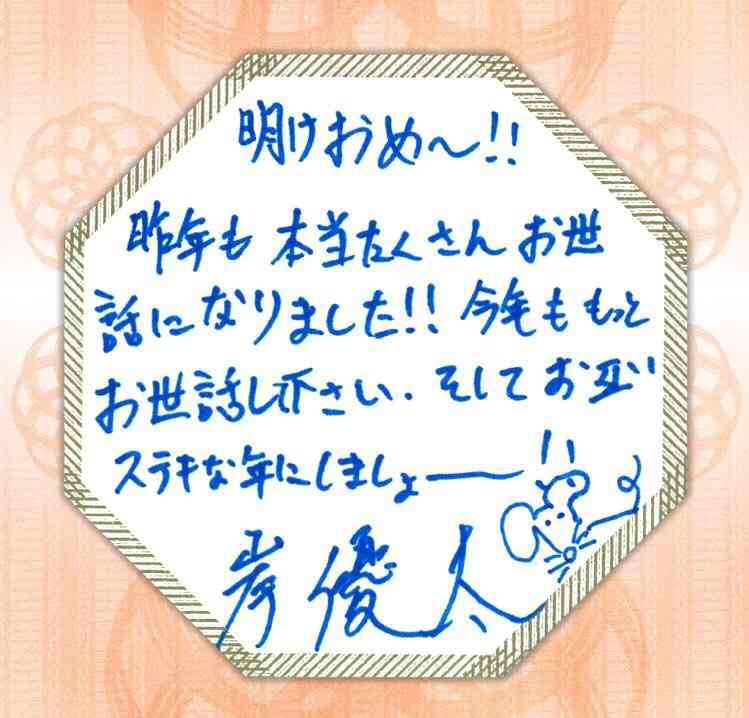 明けおめ〜!!
昨年も 本当たくさん お世
話になりました!! 今年も もっと
お世話し下さい. そして お互い
ステキな年にしましょ――!!
岸優太